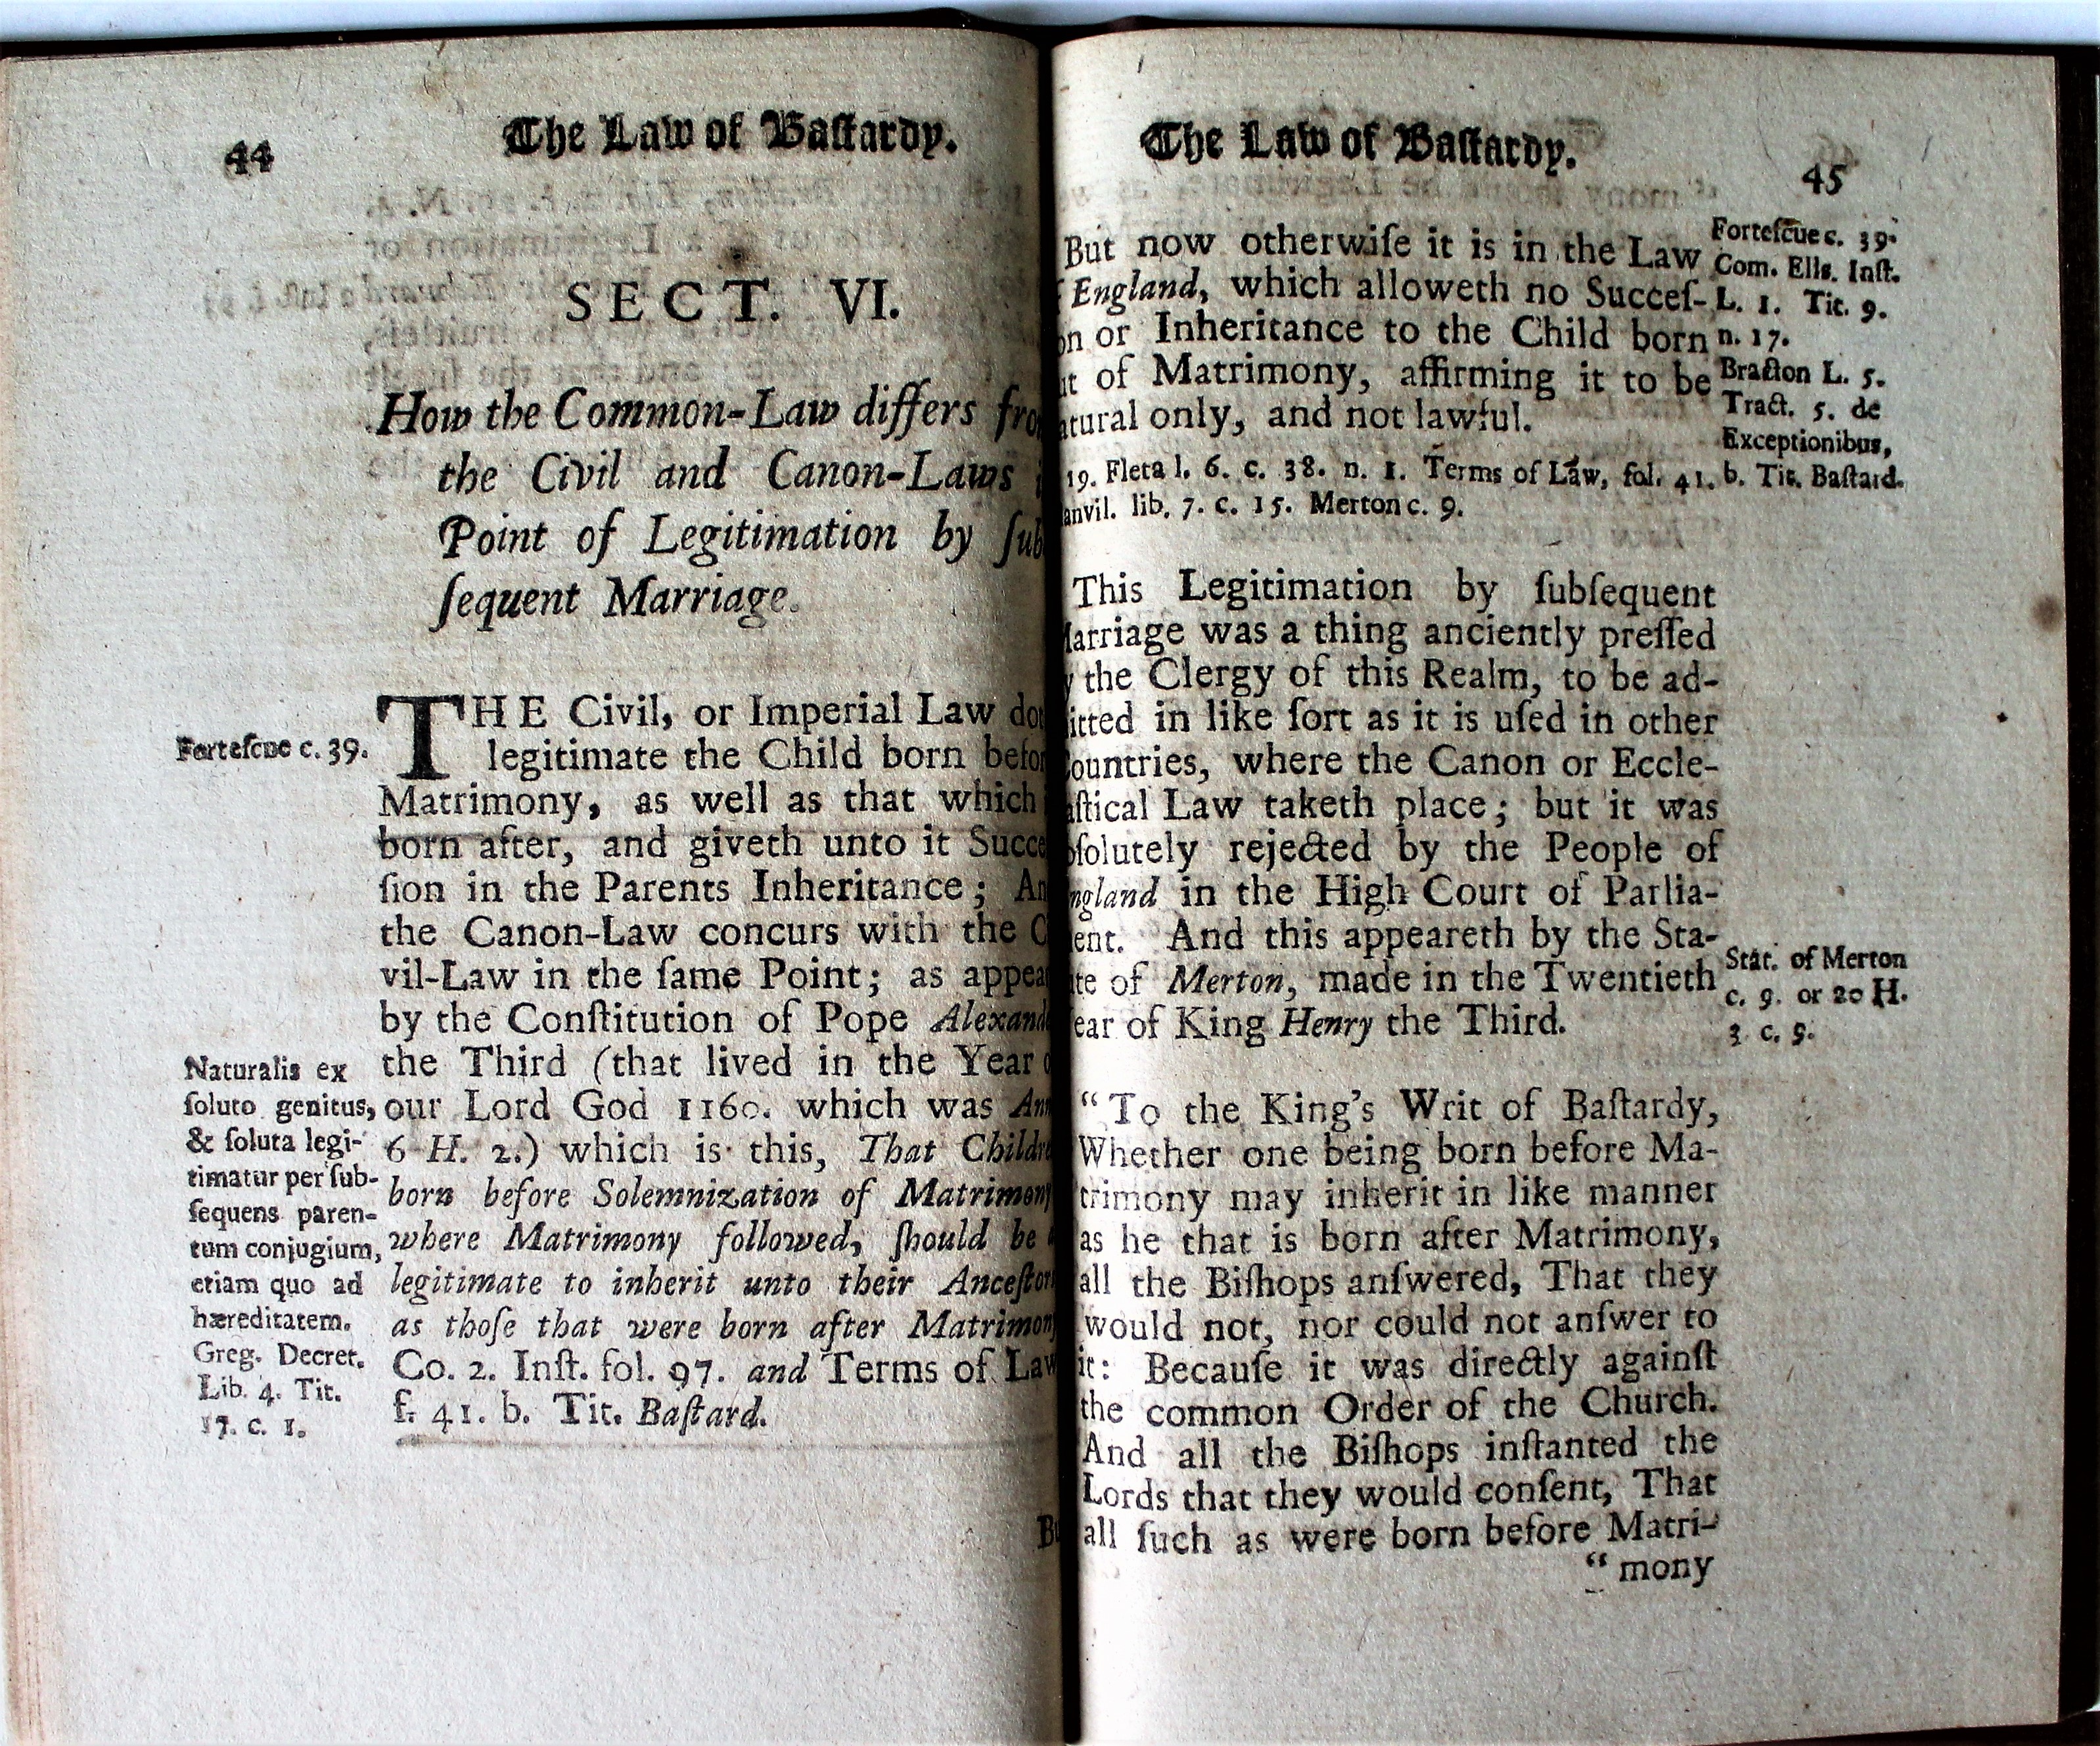 44
The Law of Baſtardy.
SECT. VI.
How the Common-Law differs fro
the Civil and Canon-Laws i
Point of Legitimation by ſub
ſequent Marriage.
Forteſcue c. 39.
THE Civil, or Imperial Law dot
legitimate the Child born befor
Matrimony, as well as that which
born after, and giveth unto it Succe
ſion in the Parents Inheritance; An
the Canon-Law concurs with the C
vil-Law in the ſame Point; as appea
by the Conſtitution of Pope Alexand
the Third (that lived in the Year o
our Lord God 1160. which was Ann
6 H. 2.) which is this, That Childre
born before Solemnization of Matrimony
where Matrimony followed, ſhould be
legitimate to inherit unto their Anceſtor
as thoſe that were born after Matrimony
Co. 2. Inſt. fol. 97. and Terms of Law
f. 41. b. Tit. Baſtard.
Naturalis ex
ſoluto genitus,
& ſoluta legi-
timatur per ſub-
ſequens paren-
tum conjugium,
etiam quo ad
hæreditatem.
Greg. Decret.
Lib. 4. Tit.
17. c. 1.
Bu
The Law of Baſtardy.
45
But now otherwiſe it is in the Law
f England, which alloweth no Succeſ-
on or Inheritance to the Child born
ut of Matrimony, affirming it to be
atural only, and not lawful.
Forteſcue c. 39.
Com. Ells. Inſt.
L. 1. Tit. 9.
n. 17.
Bracton L. 5.
Tract. 5. de
Exceptionibus,
19. Fleta l. 6. c. 38. n. 1. Terms of Law, fol. 41. b. Tit. Baſtard.
anvil. lib. 7. c. 15. Merton c. 9.
This Legitimation by ſubſequent
Marriage was a thing anciently preſſed
y the Clergy of this Realm, to be ad-
itted in like ſort as it is uſed in other
Countries, where the Canon or Eccle-
aſtical Law taketh place; but it was
bſolutely rejected by the People of
ngland in the High Court of Parlia-
ent. And this appeareth by the Sta-
te of Merton, made in the Twentieth
ear of King Henry the Third.
Stat. of Merton
c. 9. or 20 H.
3 c. 9.
“To the King's Writ of Baſtardy,
Whether one being born before Ma-
trimony may inherit in like manner
as he that is born after Matrimony,
all the Biſhops anſwered, That they
would not, nor could not anſwer to
it: Becauſe it was directly againſt
the common Order of the Church.
And all the Biſhops inſtanted the
Lords that they would conſent, That
all ſuch as were born before Matri-
“mony